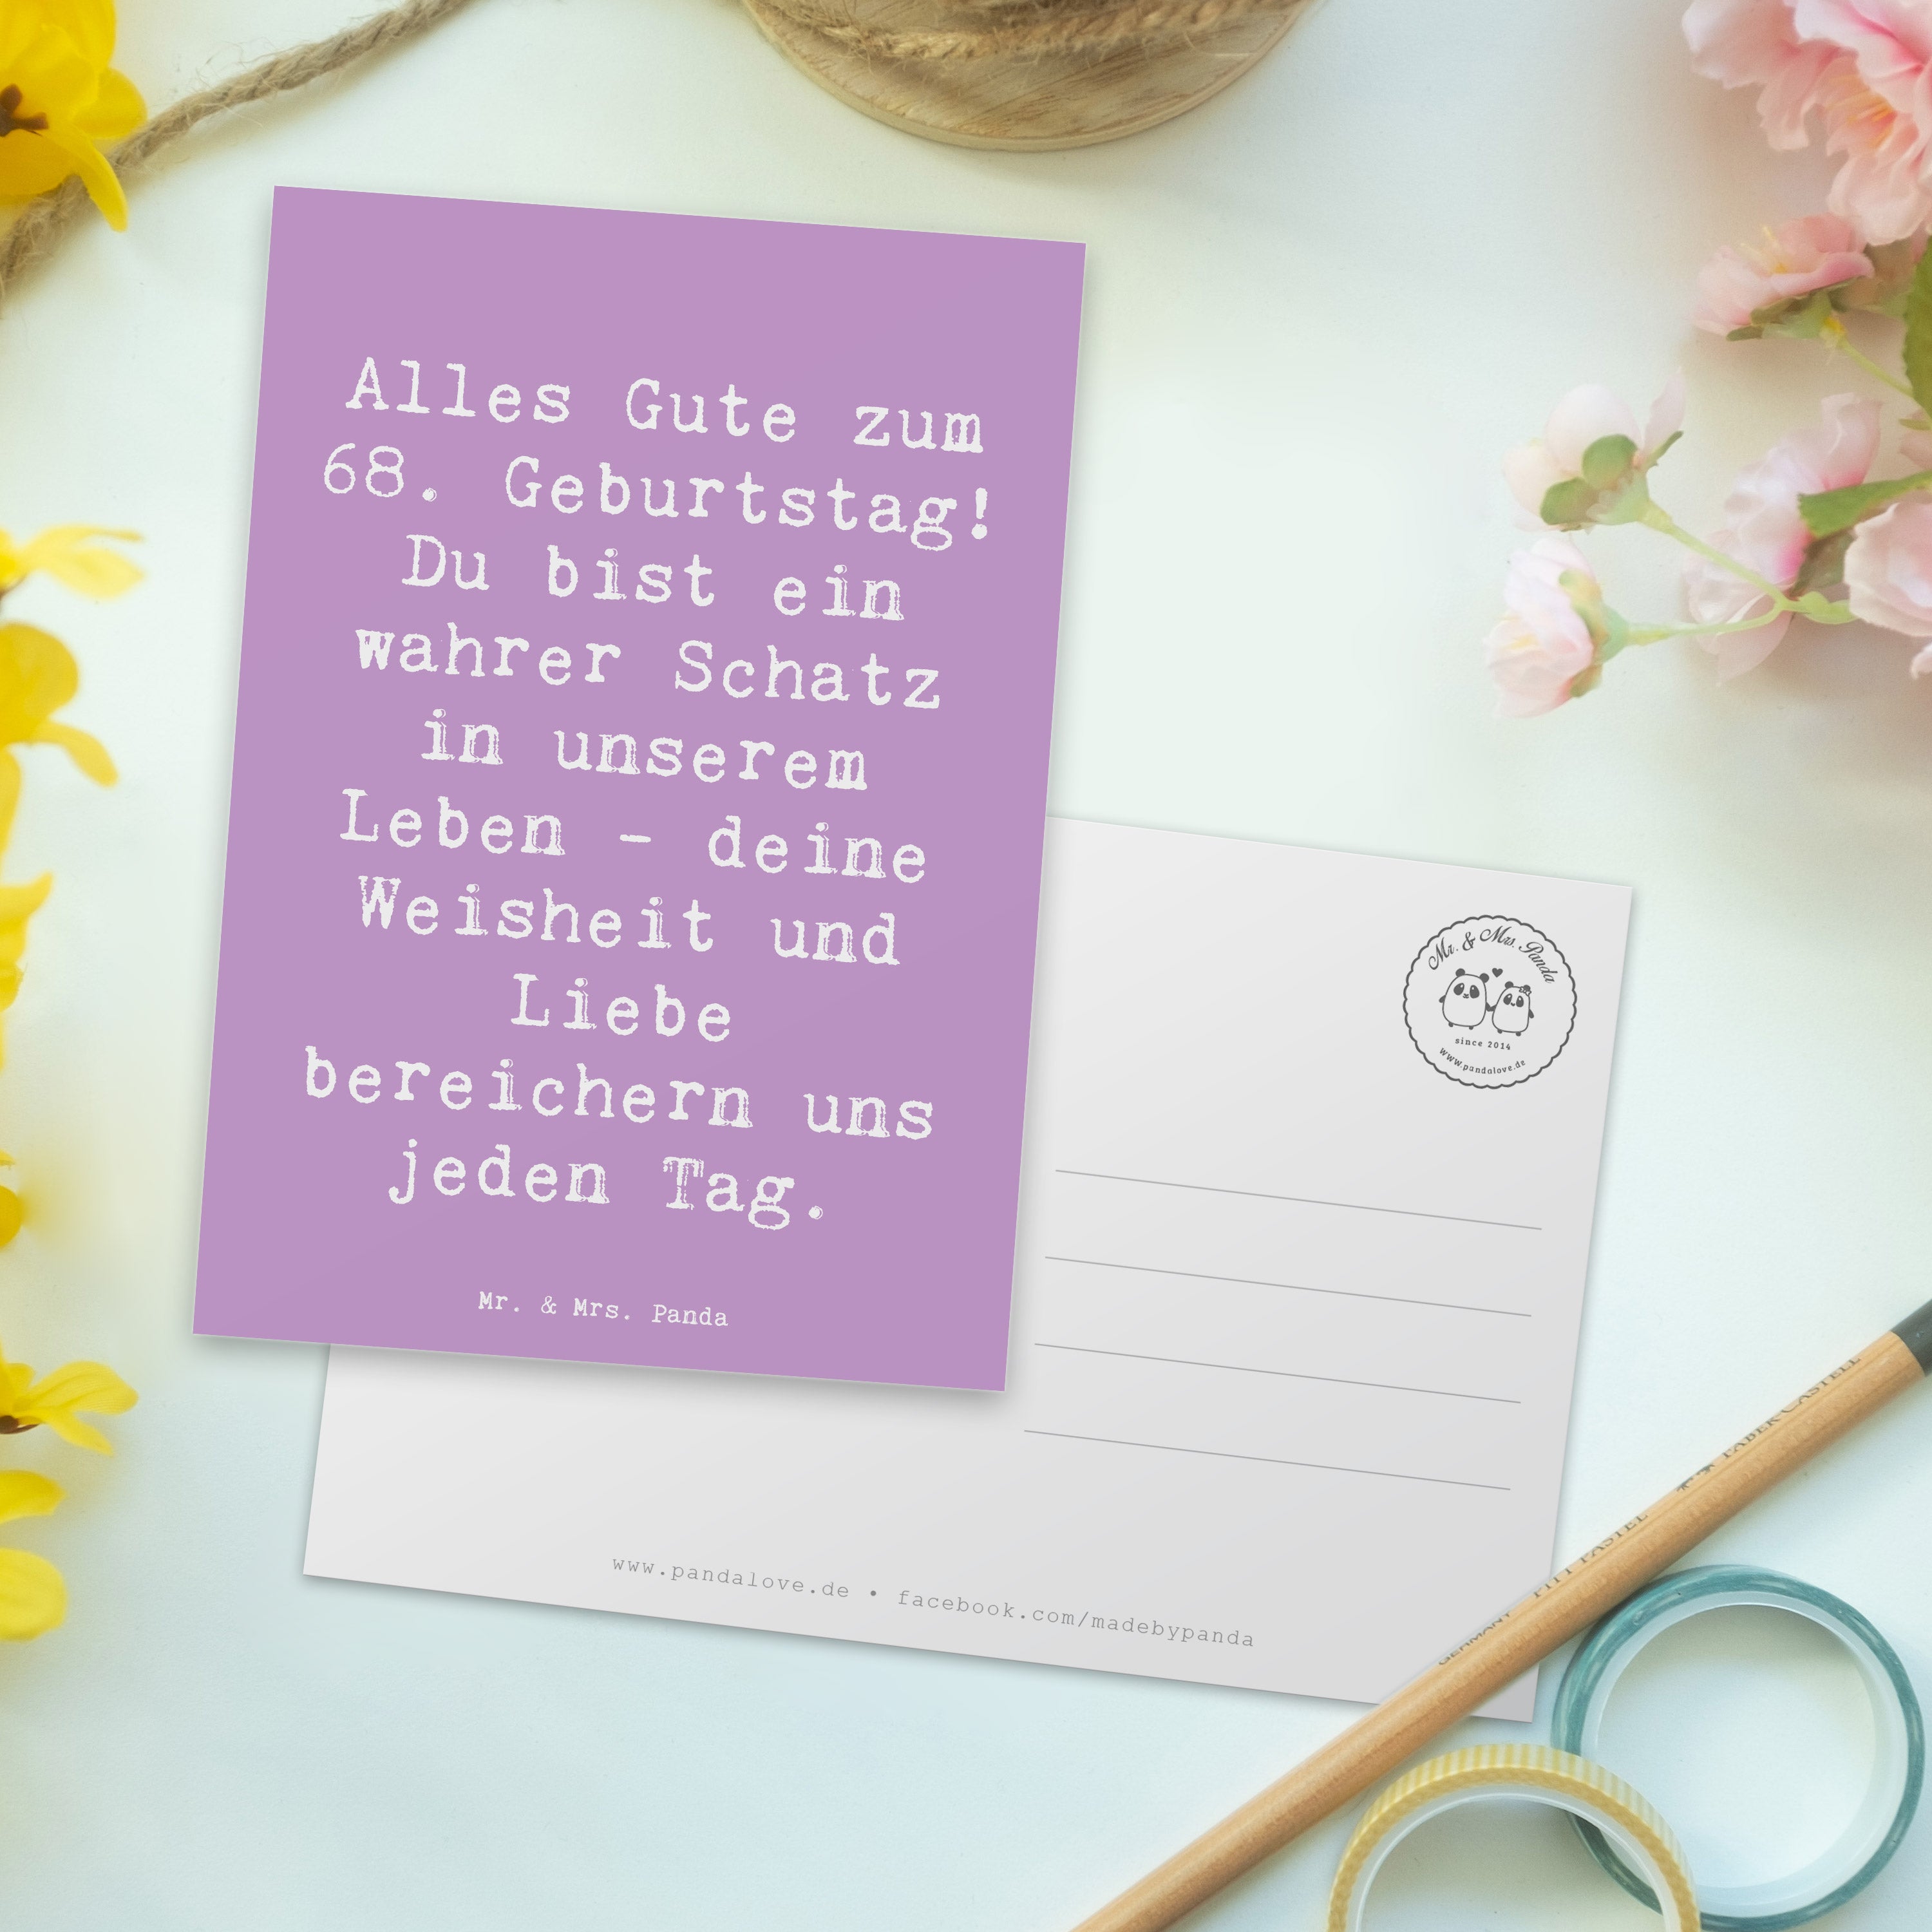 Alles Gute zum
68. Geburtstag!
Du bist ein
wahrer Schatz
in unserem
Leben - deine
Weisheit und
Liebe
bereichern uns
jeden Tag.
Mr. & Mrs. Panda
Mr. & Mrs. Panda
since 2014
www.pandalove.de
www.pandalove.de • facebook.com/madebypanda
GERMANY PITT PASTEL FABER-CASTELL